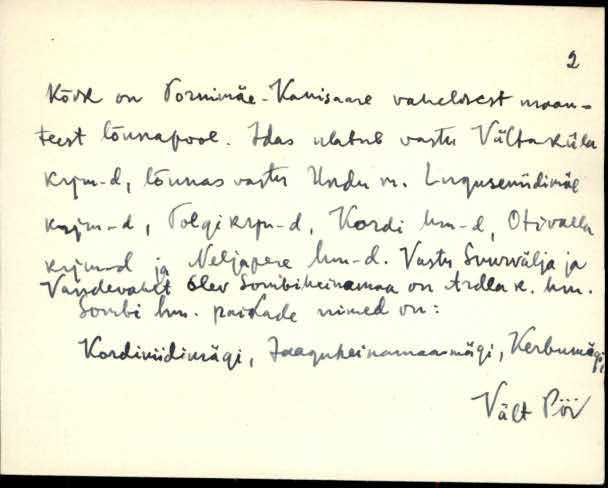 2
Kõik on Tornimäe-Kanissaare vahelisest maan-
teest lõunapool. Idas ulatub vastu Välta küla
krjm-d, lõunas vastu Undu m.
krjm-d, krjm-d, Kordi hm-d, Otivalla
krjm-d ja Neljapere hm-d. Vastu Suurvälja ja
Vahdevahet olev Sombiheinamaa on Ardla k. hm.
Sombi hm. paikade nimed on:
Kordiniidimägi, Jaaguheinamaamägi, Kerbumägi,
Vält Pöi